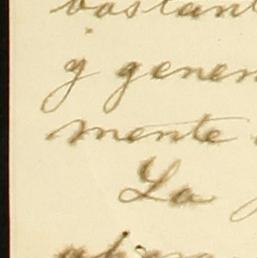 bastant
y gener
mente
La
ahora